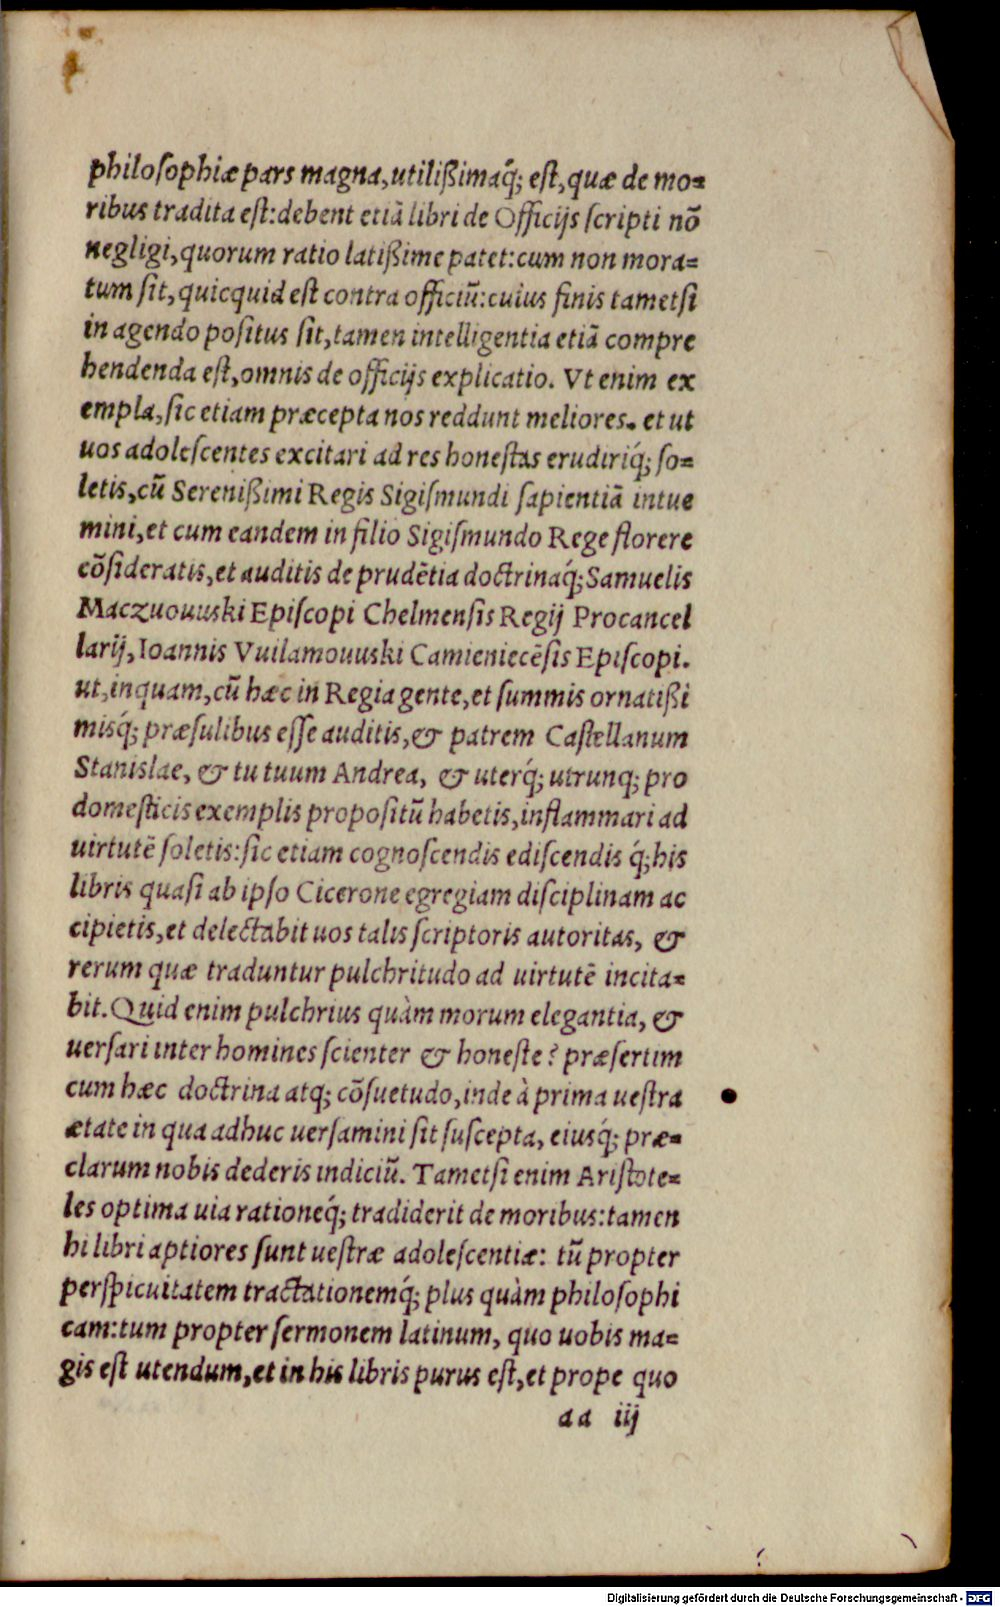 philosophiæ pars magna, utilißimaq́; est, quæ de mo=
ribus tradita est: debent etiã libri de Officijs scripti nõ
negligi, quorum ratio latißime patet: cum non mora=
tum sit, quicquid est contra officiũ: cuius finis tametsi
in agendo positus sit, tamen intelligentia etiã compre
hendenda est, omnis de officijs explicatio. Vt enim ex
empla, sic etiam præcepta nos reddunt meliores. et ut
uos adolescentes excitari ad res honestas erudiriq́; so=
letis, cũ Serenißimi Regis Sigismundi sapientiã intue
mini, et cum eandem in filio Sigismundo Rege florere
cõsideratis, et auditis de prudẽtia doctrinaq́; Samuelis
Maczuouuski Episcopi Chelmensis Regij Procancel
larij, Ioannis Vuilamouuski Camieniecẽsis Episcopi.
ut, inquam, cũ hæc in Regia gente, et summis ornatißi
misq́; præsulibus esse auditis, & patrem Castellanum
Stanislae, & tu tuum Andrea, & uterq́; utrunq; pro
domesticis exemplis propositũ habetis, inflammari ad
uirtutẽ soletis: sic etiam cognoscendis ediscendis q́; his
libris quasi ab ipso Cicerone egregiam disciplinam ac
cipietis, et delectabit uos talis scriptoris autoritas, &
rerum quæ traduntur pulchritudo ad uirtutẽ incita=
bit. Quid enim pulchrius quàm morum elegantia, &
uersari inter homines scienter & honeste? præsertim
cum hæc doctrina atq; cõsuetudo, inde à prima uestra
ætate in qua adhuc uersamini sit suscepta, eiusq́; præ=
clarum nobis dederis indiciũ. Tametsi enim Aristote=
les optima uia rationeq́; tradiderit de moribus: tamen
hi libri aptiores sunt uestræ adolescentiæ: tũ propter
perspicuitatem tractationemq́; plus quàm philosophi
cam: tum propter sermonem latinum, quo uobis ma=
gis est utendum, et in his libris purus est, et prope quo
aa iij
Digitalisierung gefördert durch die Deutsche Forschungsgemeinschaft - DFG